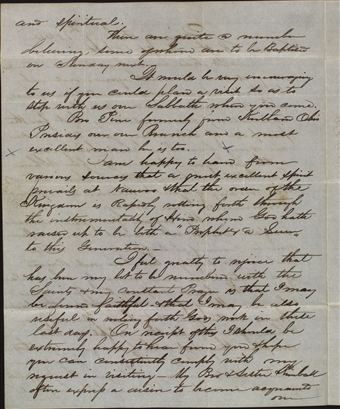 and spiritual.
There are quite a number
believing some of whom are to be Baptised
on Sunday next.
It would be very encouraging
to us if you could plan a visit so as to
stop with us one Sabbath when you come.
Bro Pine formerly from Kirtland Ohio
Presides over our Branch and a most
excellent man he is too.
I am happy to learn from
various sources that a most excellent spirit
prevails at Nauvoo & that the order of the
Kingdom is Rapidly rolling forth through
the instrumentality of Him whom God hath
raised up to be both a "Prophet & a Seer"
to this Generation.
I feel greatly to rejoice that
has been my lot to be numbered with the
Saints & my constant Prayer is that I may
be found faithful & that I may be also
useful in rolling forth Gods work in these
last days. On receipt of this I should be
extremely happy to hear from you & hope
you can consistently comply with my
request in visiting us. My Bro & Sister
often express a desire to become acquainted